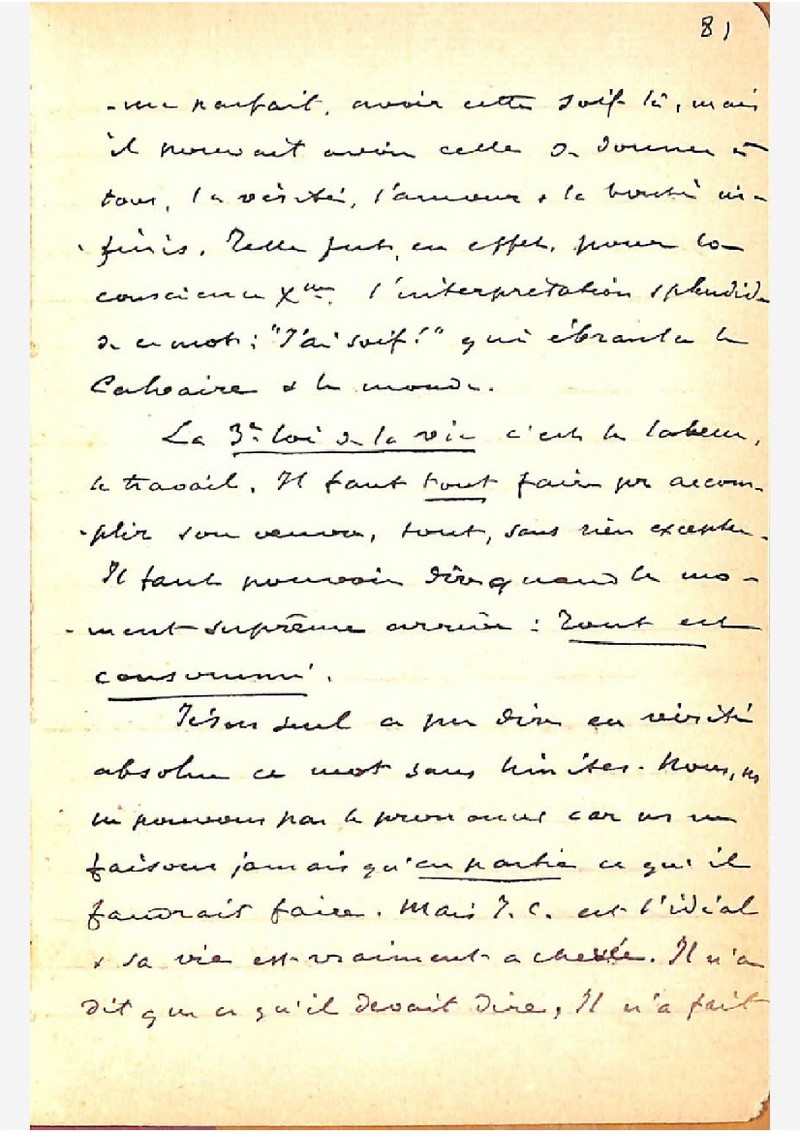 81
-me parfait, avoir cette soif-là, mais
il pouvait avoir celle de donner à
tous, la vérité, l'amour & la bonté in-
-finis. Telle fut, en effet, pour la
conscience Xne l'interprétation splendide
de ce mot: "J'ai soif!" qui ébranla le
Calvaire & le monde.
La 3e loi de la vie c'est le labeur,
le travail. Il faut tout faire pr accom-
-plir son œuvre, tout, sans rien excepter.
Il faut pouvoir dire quand le mo-
-ment suprême arrive: Tout est
consommé.
Jésus seul a pu dire en vérité
absolue ce mot sans limites. Nous, ns
ne pouvons pas le prononcer car ns ne
faisons jamais qu'en partie ce qu'il
faudrait faire. Mais J. C. est l'idéal
& sa vie est vraiment achevée. Il n'a
dit que ce qu'il devait dire, Il n'a fait